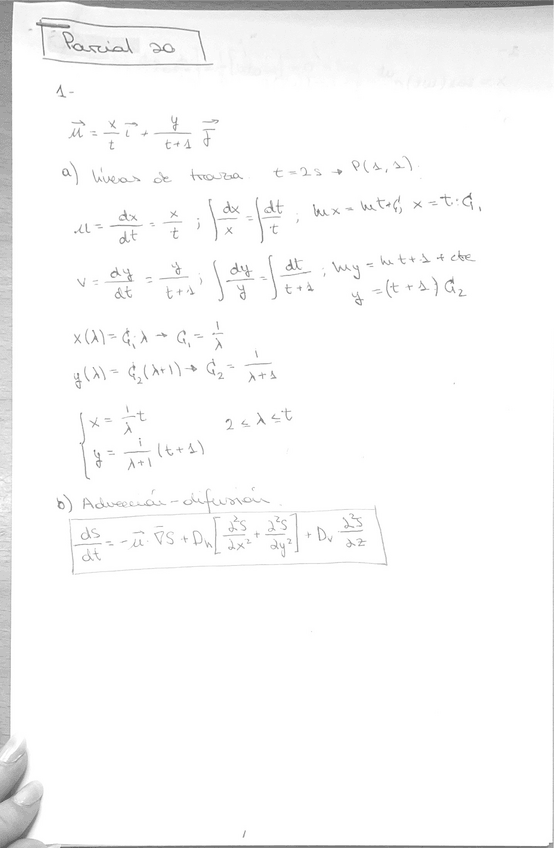 Parcial 20
1-
u⃗ = x/t i⃗ + y/(t+1) j⃗
a) líneas de traza t = 2s → P(1,1)
u = dx/dt = x/t ; ∫dx/x = ∫dt/t ; ln x = ln t + C₁ x = t·C₁
v = dy/dt = y/(t+1) ; ∫dy/y = ∫dt/(t+1) ; ln y = ln t+1 + cte
y = (t+1) C₂
x(λ) = C₁·λ → C₁ = 1/λ
y(λ) = C₂(λ+1) → C₂ = 1/(λ+1)
{ x = 1/λ t 2 ≤ λ ≤ t
y = 1/(λ+1) (t+1)
b) Advección-difusión.
ds/dt = -u⃗·∇⃗S + Dₕ [∂²S/∂x² + ∂²S/∂y²] + Dᵥ ∂²S/∂z
1